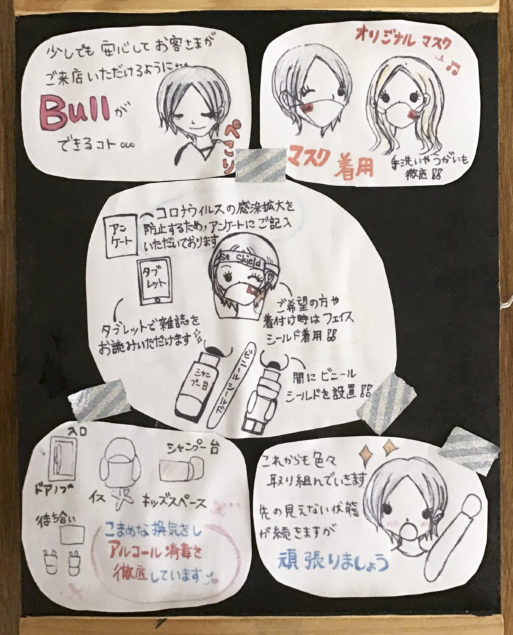 少しでも安心してお客さまが
ご来店いただけるように…
Bullが
できるコト
ぺこり
オリジナル マスク
マスク 着用
手洗いやうがいも
徹底!!
コロナウイルスの感染拡大を
防止するため、アンケートにご記入
いただいております
アン
ケート
タブ
レット
Be Shield
タブレットで雑誌を
お読みいただけます
ご希望の方や
着付け時はフェイス
シールド着用!!
シャン
プー台
ビニールシールド
間にビニール
シールドを設置!!
入口
ドアノブ
イス
シャンプー台
キッズスペース
待ち合い
こまめな換気をし
アルコール消毒を
徹底しています
これからも色々
取り組んでいきます
先の見えない状態
が続きますが
頑張りましょう